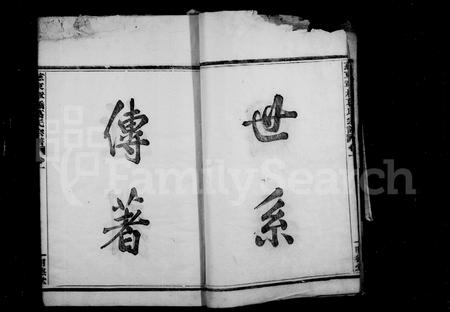 世系
傳著
FamilySearch